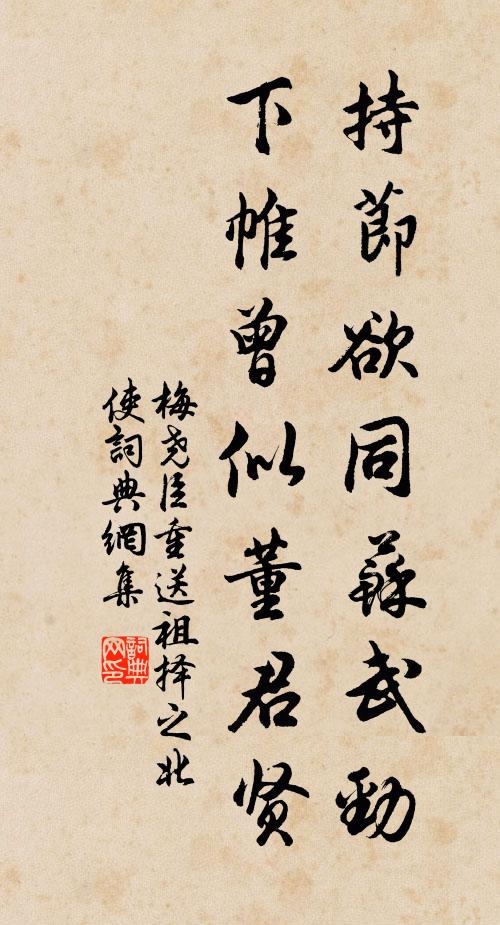 持節欲同蘇武勁
下帷曾似董君贤
梅尧臣重送祖择之北
使詞典網集
詞典网印